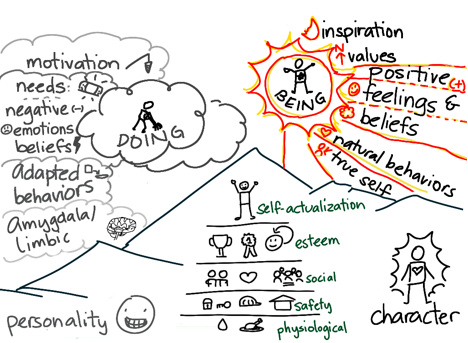 motivation
needs:
negative (-)
emotions
beliefs
adapted
behaviors
Amygdala/
limbic
DOING
inspiration
N
values
BEING
Positive (+)
feelings &
beliefs
natural behaviors
true self
self-actualization
esteem
social
safety
physiological
personality
character